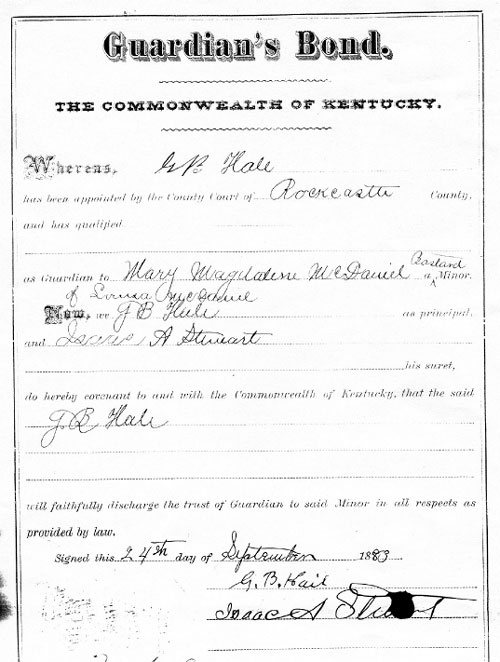 Guardian's Bond.
THE COMMONWEALTH OF KENTUCKY.
Whereas, G B Hale
has been appointed by the County Court of Rockcastle County,
and has qualified
Bastard
as Guardian to Mary Magdalene McDaniel a Minor.
of Louisa McDaniel
Now, we G B Hale as principal,
and Isaac A Stewart
his suret,
do hereby covenant to and with the Commonwealth of Kentucky, that the said
G B Hale
will faithfully discharge the trust of Guardian to said Minor in all respects as
provided by law.
Signed this 24th day of September 1883
G. B. Hail
Isaac A